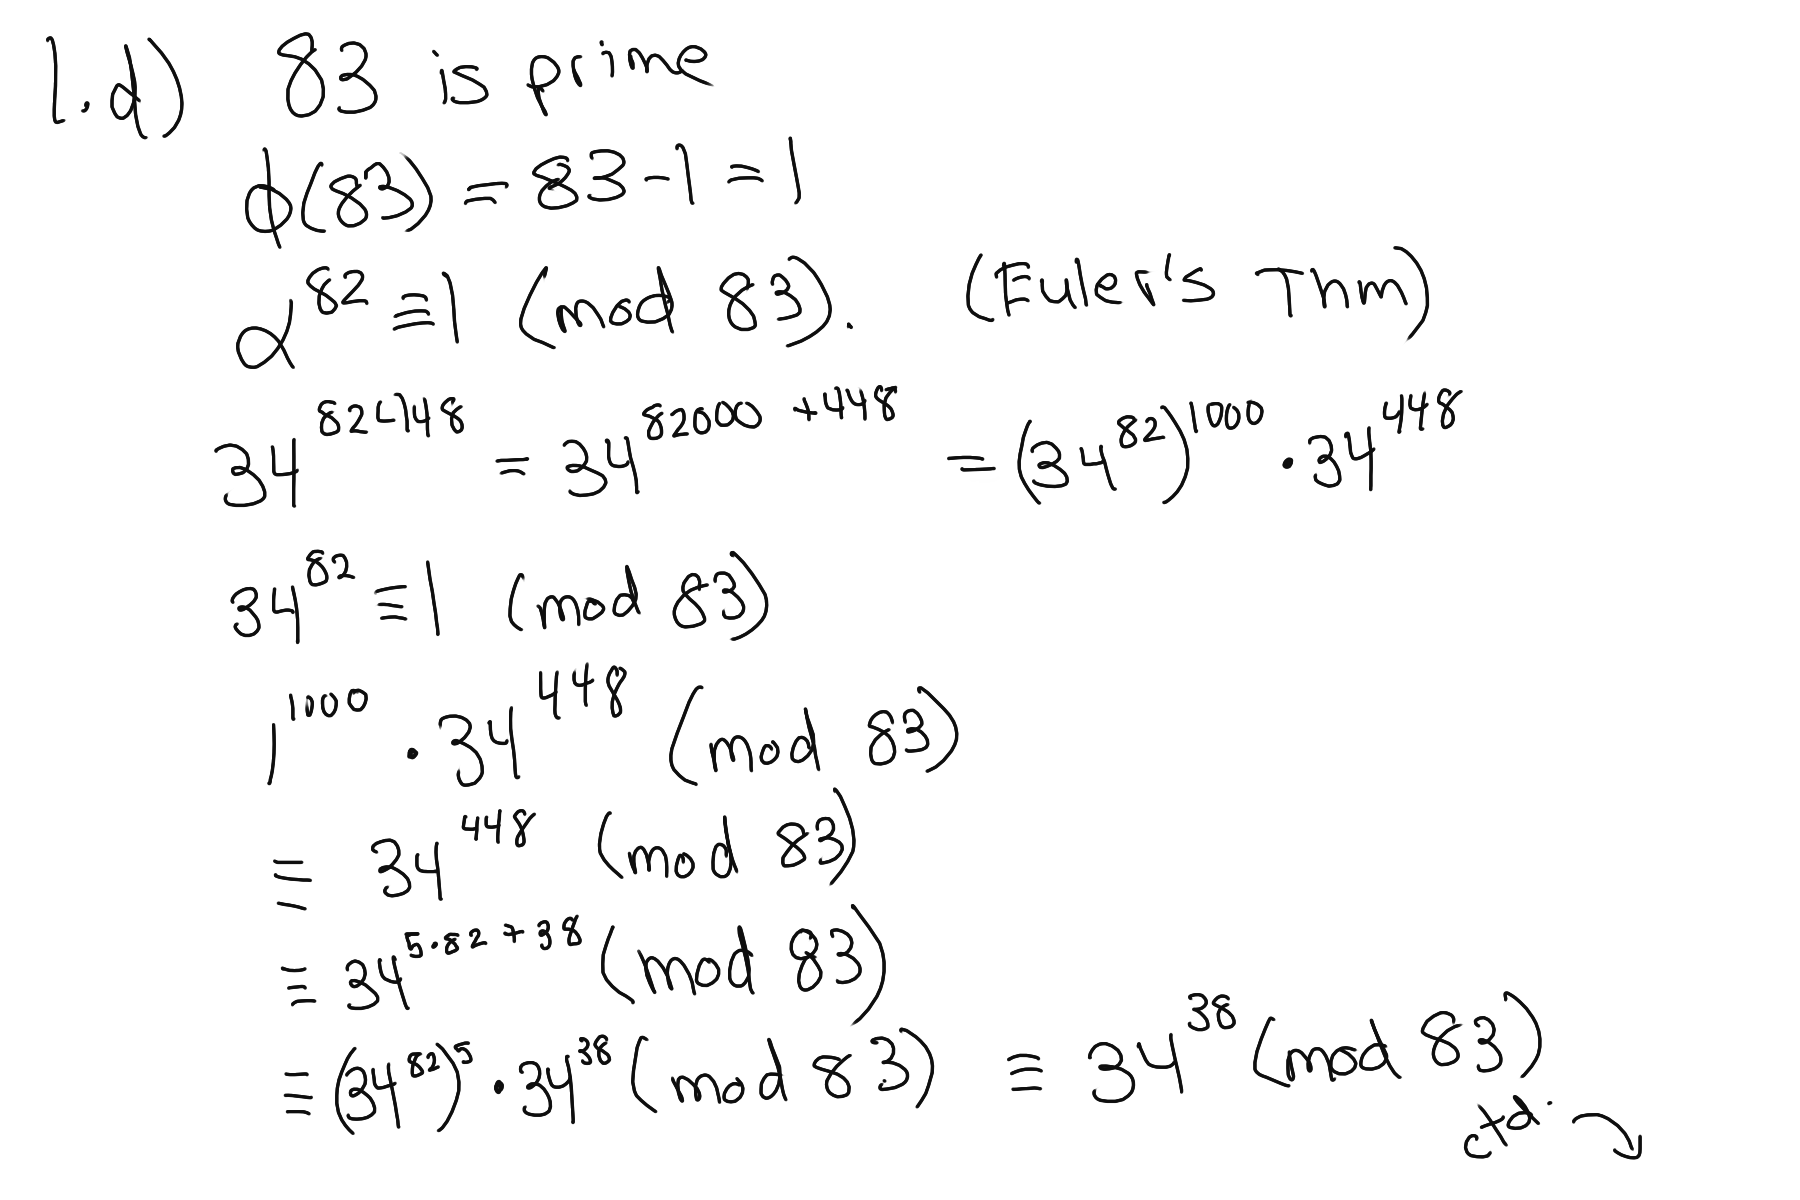 1.d) 83 is prime
ϕ(83) = 83-1 = 1
α^82 ≡ 1 (mod 83). (Euler's Thm)
34^82448 = 34^82000 +448 = (34^82)^1000 · 34^448
34^82 ≡ 1 (mod 83)
1^1000 · 34^448 (mod 83)
≡ 34^448 (mod 83)
≡ 34^5·82 + 38 (mod 83)
≡ (34^82)^5 · 34^38 (mod 83) ≡ 34^38 (mod 83)
ctd. ↷